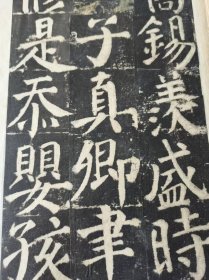 錫羨盛時
子真卿聿
修是忝嬰孩